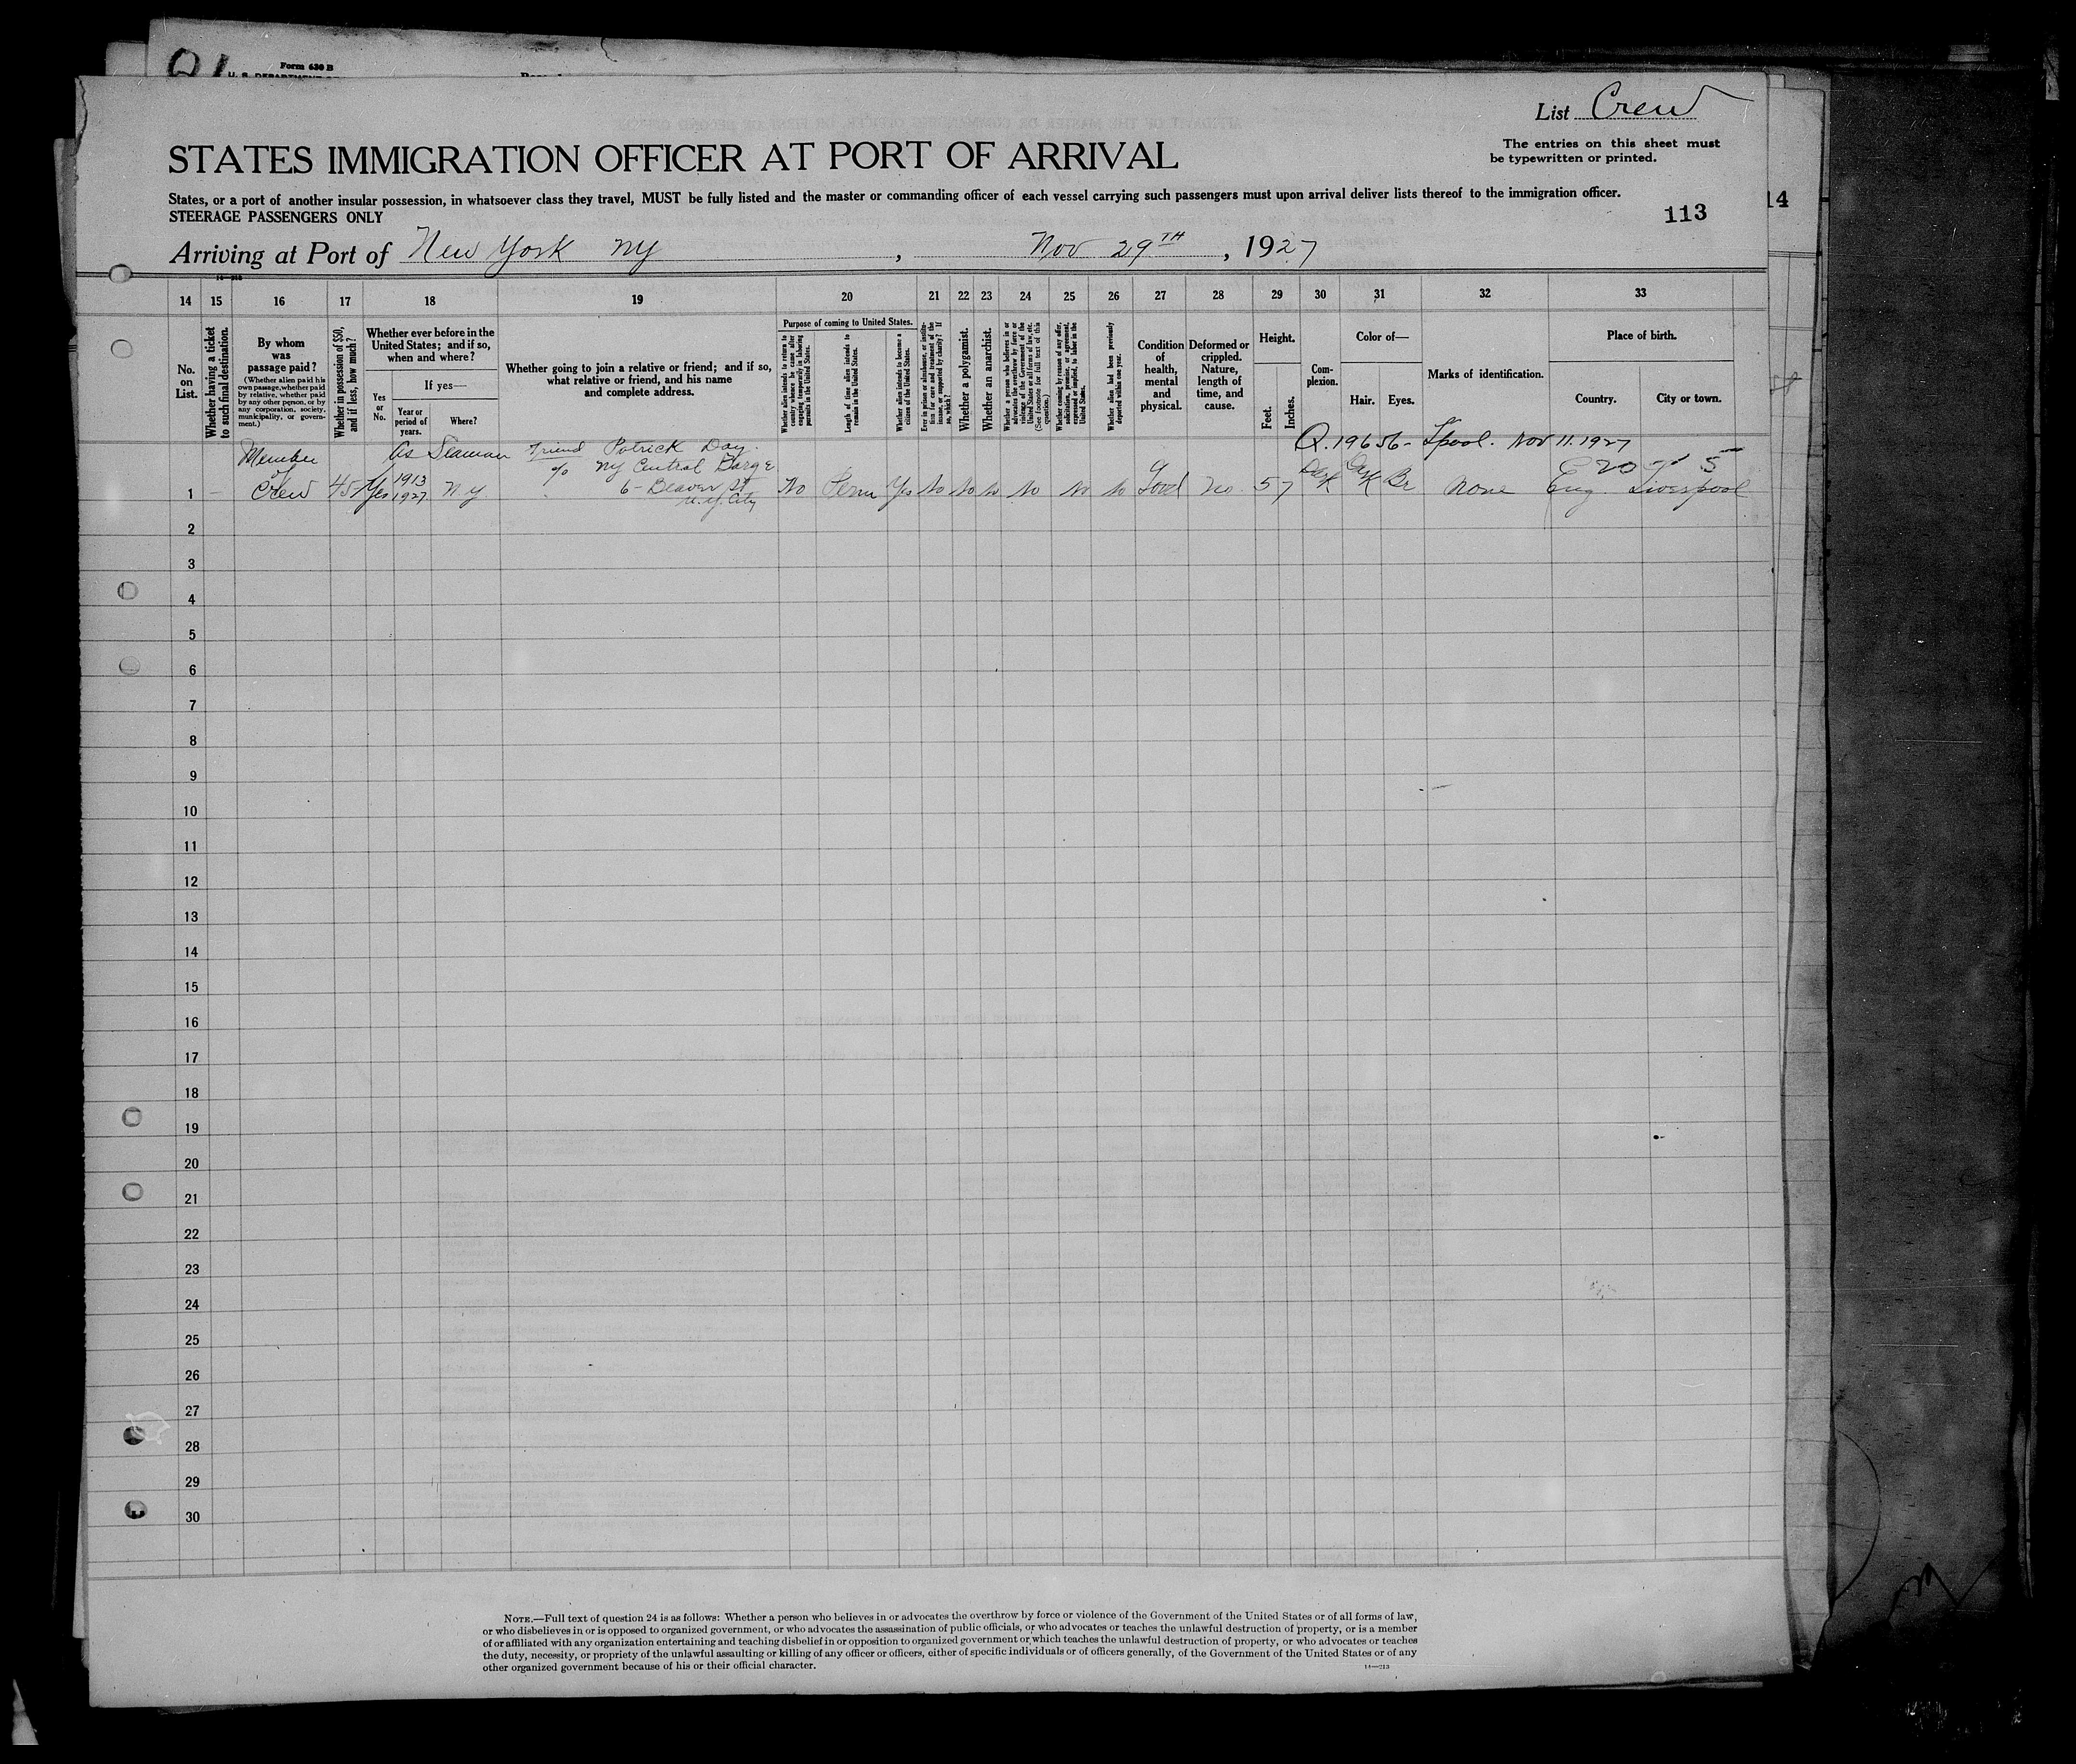 Form 630 B
List Crew
The entries on this sheet must
be typewritten or printed.
STATES IMMIGRATION OFFICER AT PORT OF ARRIVAL
States, or a port of another insular possession, in whatsoever class they travel, MUST be fully listed and the master or commanding officer of each vessel carrying such passengers must upon arrival deliver lists thereof to the immigration officer.
STEERAGE PASSENGERS ONLY
113
14
Arriving at Port of New York NY , Nov 29TH , 1927
14 15 16 17 18 19 20 21 22 23 24 25 26 27 28 29 30 31 32 33
No. on List.
Whether having a ticket to such final destination.
By whom was passage paid?
(Whether alien paid his own passage, whether paid by relative, whether paid by any other person, or by any corporation, society, municipality, or government.)
Whether in possession of $50, and if less, how much?
Whether ever before in the United States; and if so, when and where?
Yes or No.
If yes—
Year or period of years.
Where?
Whether going to join a relative or friend; and if so, what relative or friend, and his name and complete address.
Purpose of coming to United States.
Whether alien intends to return to country whence he came after engaging temporarily in laboring pursuits in the United States.
Length of time alien intends to remain in the United States.
Whether alien intends to become a citizen of the United States.
Ever in prison or almshouse, or institution for care and treatment of the insane, or supported by charity? If so, which?
Whether a polygamist.
Whether an anarchist.
Whether a person who believes in or advocates the overthrow by force or violence of the Government of the United States or all forms of law, etc. (See footnote for full text of this question.)
Whether coming by reason of any offer, solicitation, promise, or agreement, expressed or implied, to labor in the United States.
Whether alien had been previously deported within one year.
Condition of health, mental and physical.
Deformed or crippled. Nature, length of time, and cause.
Height.
Feet. Inches.
Complexion.
Color of—
Hair. Eyes.
Marks of identification.
Place of birth.
Country. City or town.
Q. 19656 - Lpool. Nov 11. 1927
Member As Seaman Friend Patrick Day.
of c/o NY Central Barge
1 – Crew 45– Yes 1913 1927 NY 6 – Beaver St No Perm Yes No No No No No No Good No. 5 7 Dark Dark Br None Eng. Liverpool
N.Y. City
2
3
4
5
6
7
8
9
10
11
12
13
14
15
16
17
18
19
20
21
22
23
24
25
26
27
28
29
30
NOTE.—Full text of question 24 is as follows: Whether a person who believes in or advocates the overthrow by force or violence of the Government of the United States or of all forms of law,
or who disbelieves in or is opposed to organized government, or who advocates the assassination of public officials, or who advocates or teaches the unlawful destruction of property, or is a member
of or affiliated with any organization entertaining and teaching disbelief in or opposition to organized government or which teaches the unlawful destruction of property, or who advocates or teaches
the duty, necessity, or propriety of the unlawful assaulting or killing of any officer or officers, either of specific individuals or of officers generally, of the Government of the United States or of any
other organized government because of his or their official character.
14—213